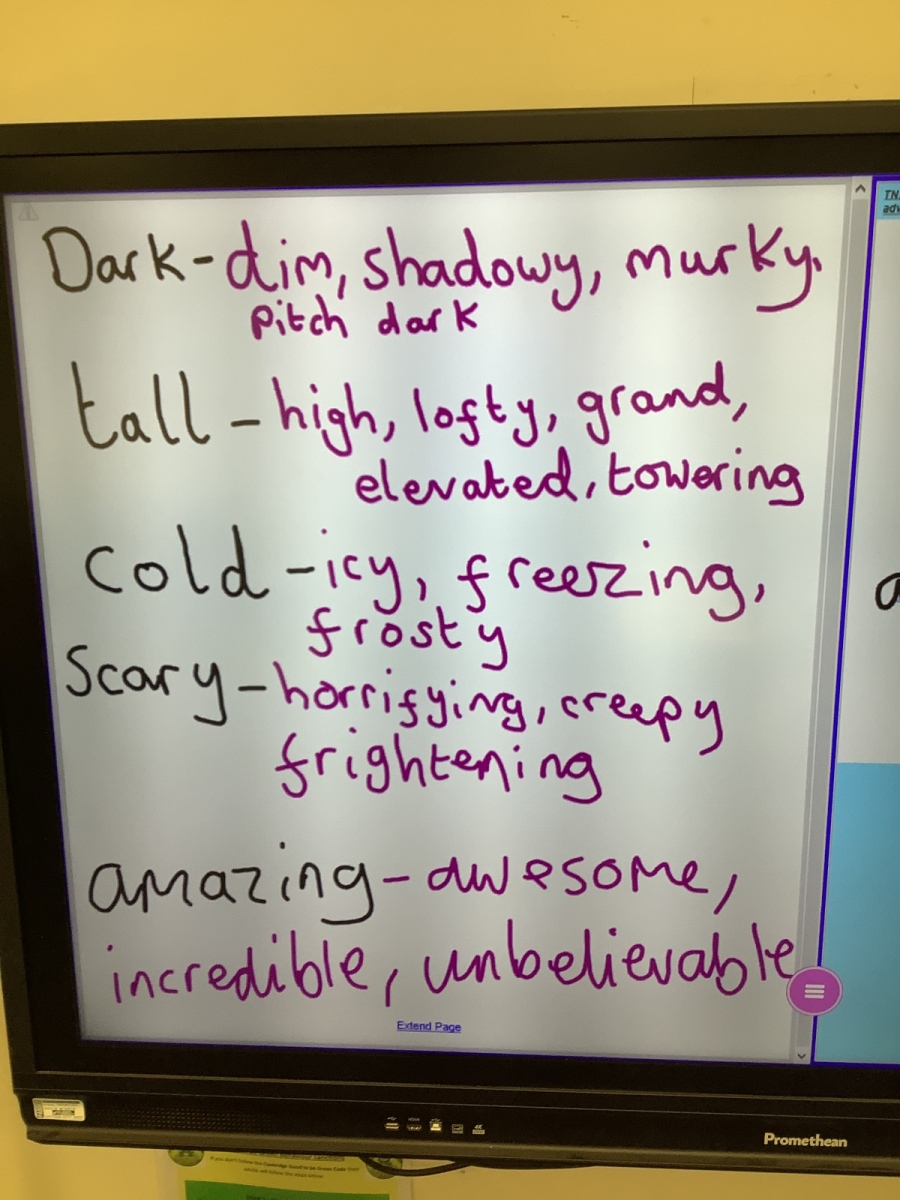 Dark - dim, shadowy, murky.
pitch dark
tall - high, lofty, grand,
elevated, towering
cold - icy, freezing,
frosty
Scary - horrifying, creepy
frightening
amazing - awesome,
incredible, unbelievable
Extend Page
Promethean